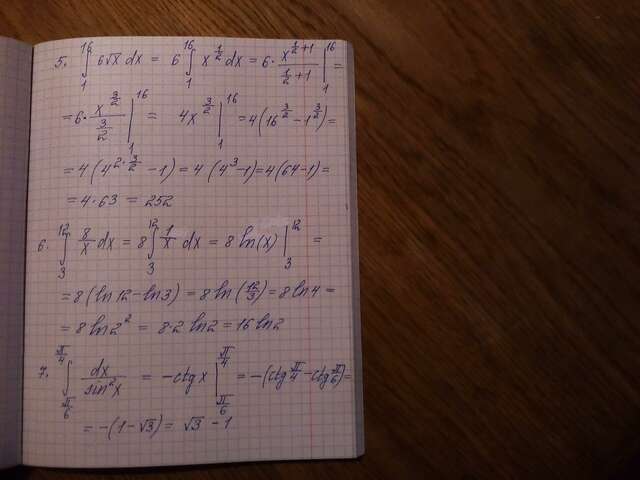 5. ∫₁¹⁶ 6√x dx = 6 ∫₁¹⁶ x^(1/2) dx = 6 · x^(1/2+1)/(1/2+1) |₁¹⁶ =
= 6 · x^(3/2)/(3/2) |₁¹⁶ = 4x^(3/2) |₁¹⁶ = 4(16^(3/2) − 1^(3/2)) =
= 4(4^(2·3/2) − 1) = 4(4³−1) = 4(64−1) =
= 4·63 = 252
6. ∫₃¹² 8/x dx = 8 ∫₃¹² 1/x dx = 8 ln(x) |₃¹² =
= 8(ln12 − ln3) = 8 ln(12/3) = 8 ln4 =
= 8 ln2² = 8·2 ln2 = 16 ln2
7. ∫_(π/6)^(π/4) dx/sin²x = −ctg x |_(π/6)^(π/4) = −(ctg π/4 − ctg π/6) =
= −(1−√3) = √3 − 1